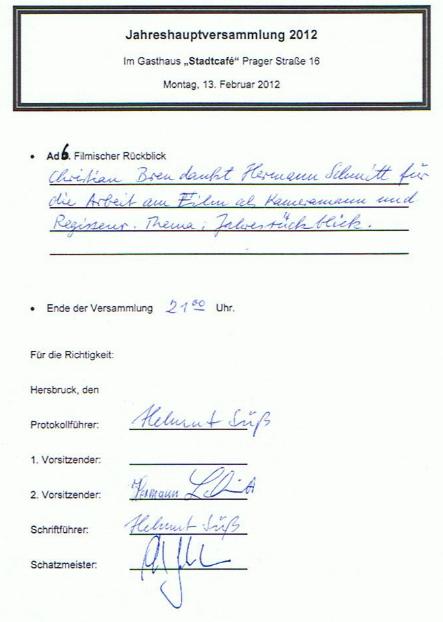 Jahreshauptversammlung 2012
Im Gasthaus „Stadtcafé“ Prager Straße 16
Montag, 13. Februar 2012
• Ad 6. Filmischer Rückblick
Christian Bren dankt Hermann Schmitt für
die Arbeit am Film als Kameramann und
Regisseur. Thema: Jahresrückblick.
• Ende der Versammlung 21⁰⁰ Uhr.
Für die Richtigkeit:
Hersbruck, den
Protokollführer: Helmut Süß
1. Vorsitzender:
2. Vorsitzender: Hermann
Schriftführer: Helmut Süß
Schatzmeister: